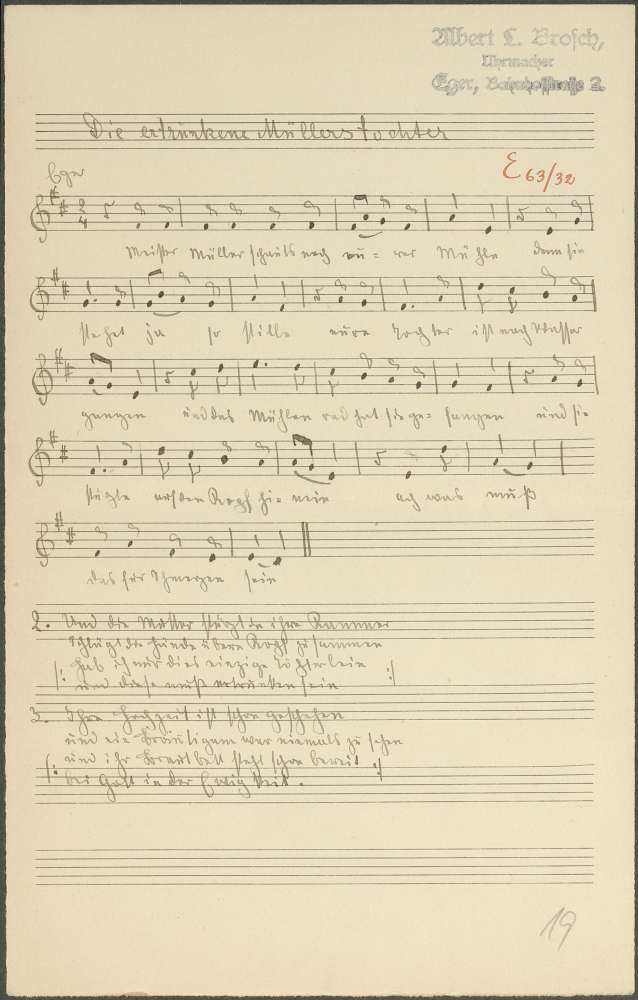 Albert L. Brosch,
Uhrmacher
Eger, Bahnhofstraße 2.
Die ertrunkene Müllerstochter
Eger
E 63/32
2/4
Meister Müller schauts nach eu = rer Mühle denn sie
stehet ja so stille eure Tochter ist nach Wasser
gangen und das Mühlen rad hat sie ge= fangen und sie
stürzte auf den Kopf hi= nein ach was muß
das für Schmerzen sein
2. Und die Mutter stürzt in ihre Kammer
Schlägt die Hände übern Kopf zusammen
/: hab ich nur dies einzige Töchterlein
und diese muß ertrunken sein :/
3. Ihre Hochzeit ist schon geschehen
und ein Bräutigam war niemals zu sehen
/: und ihr Brautbett steht schon bereit :/
bei Gott in der Ewigkeit.
19